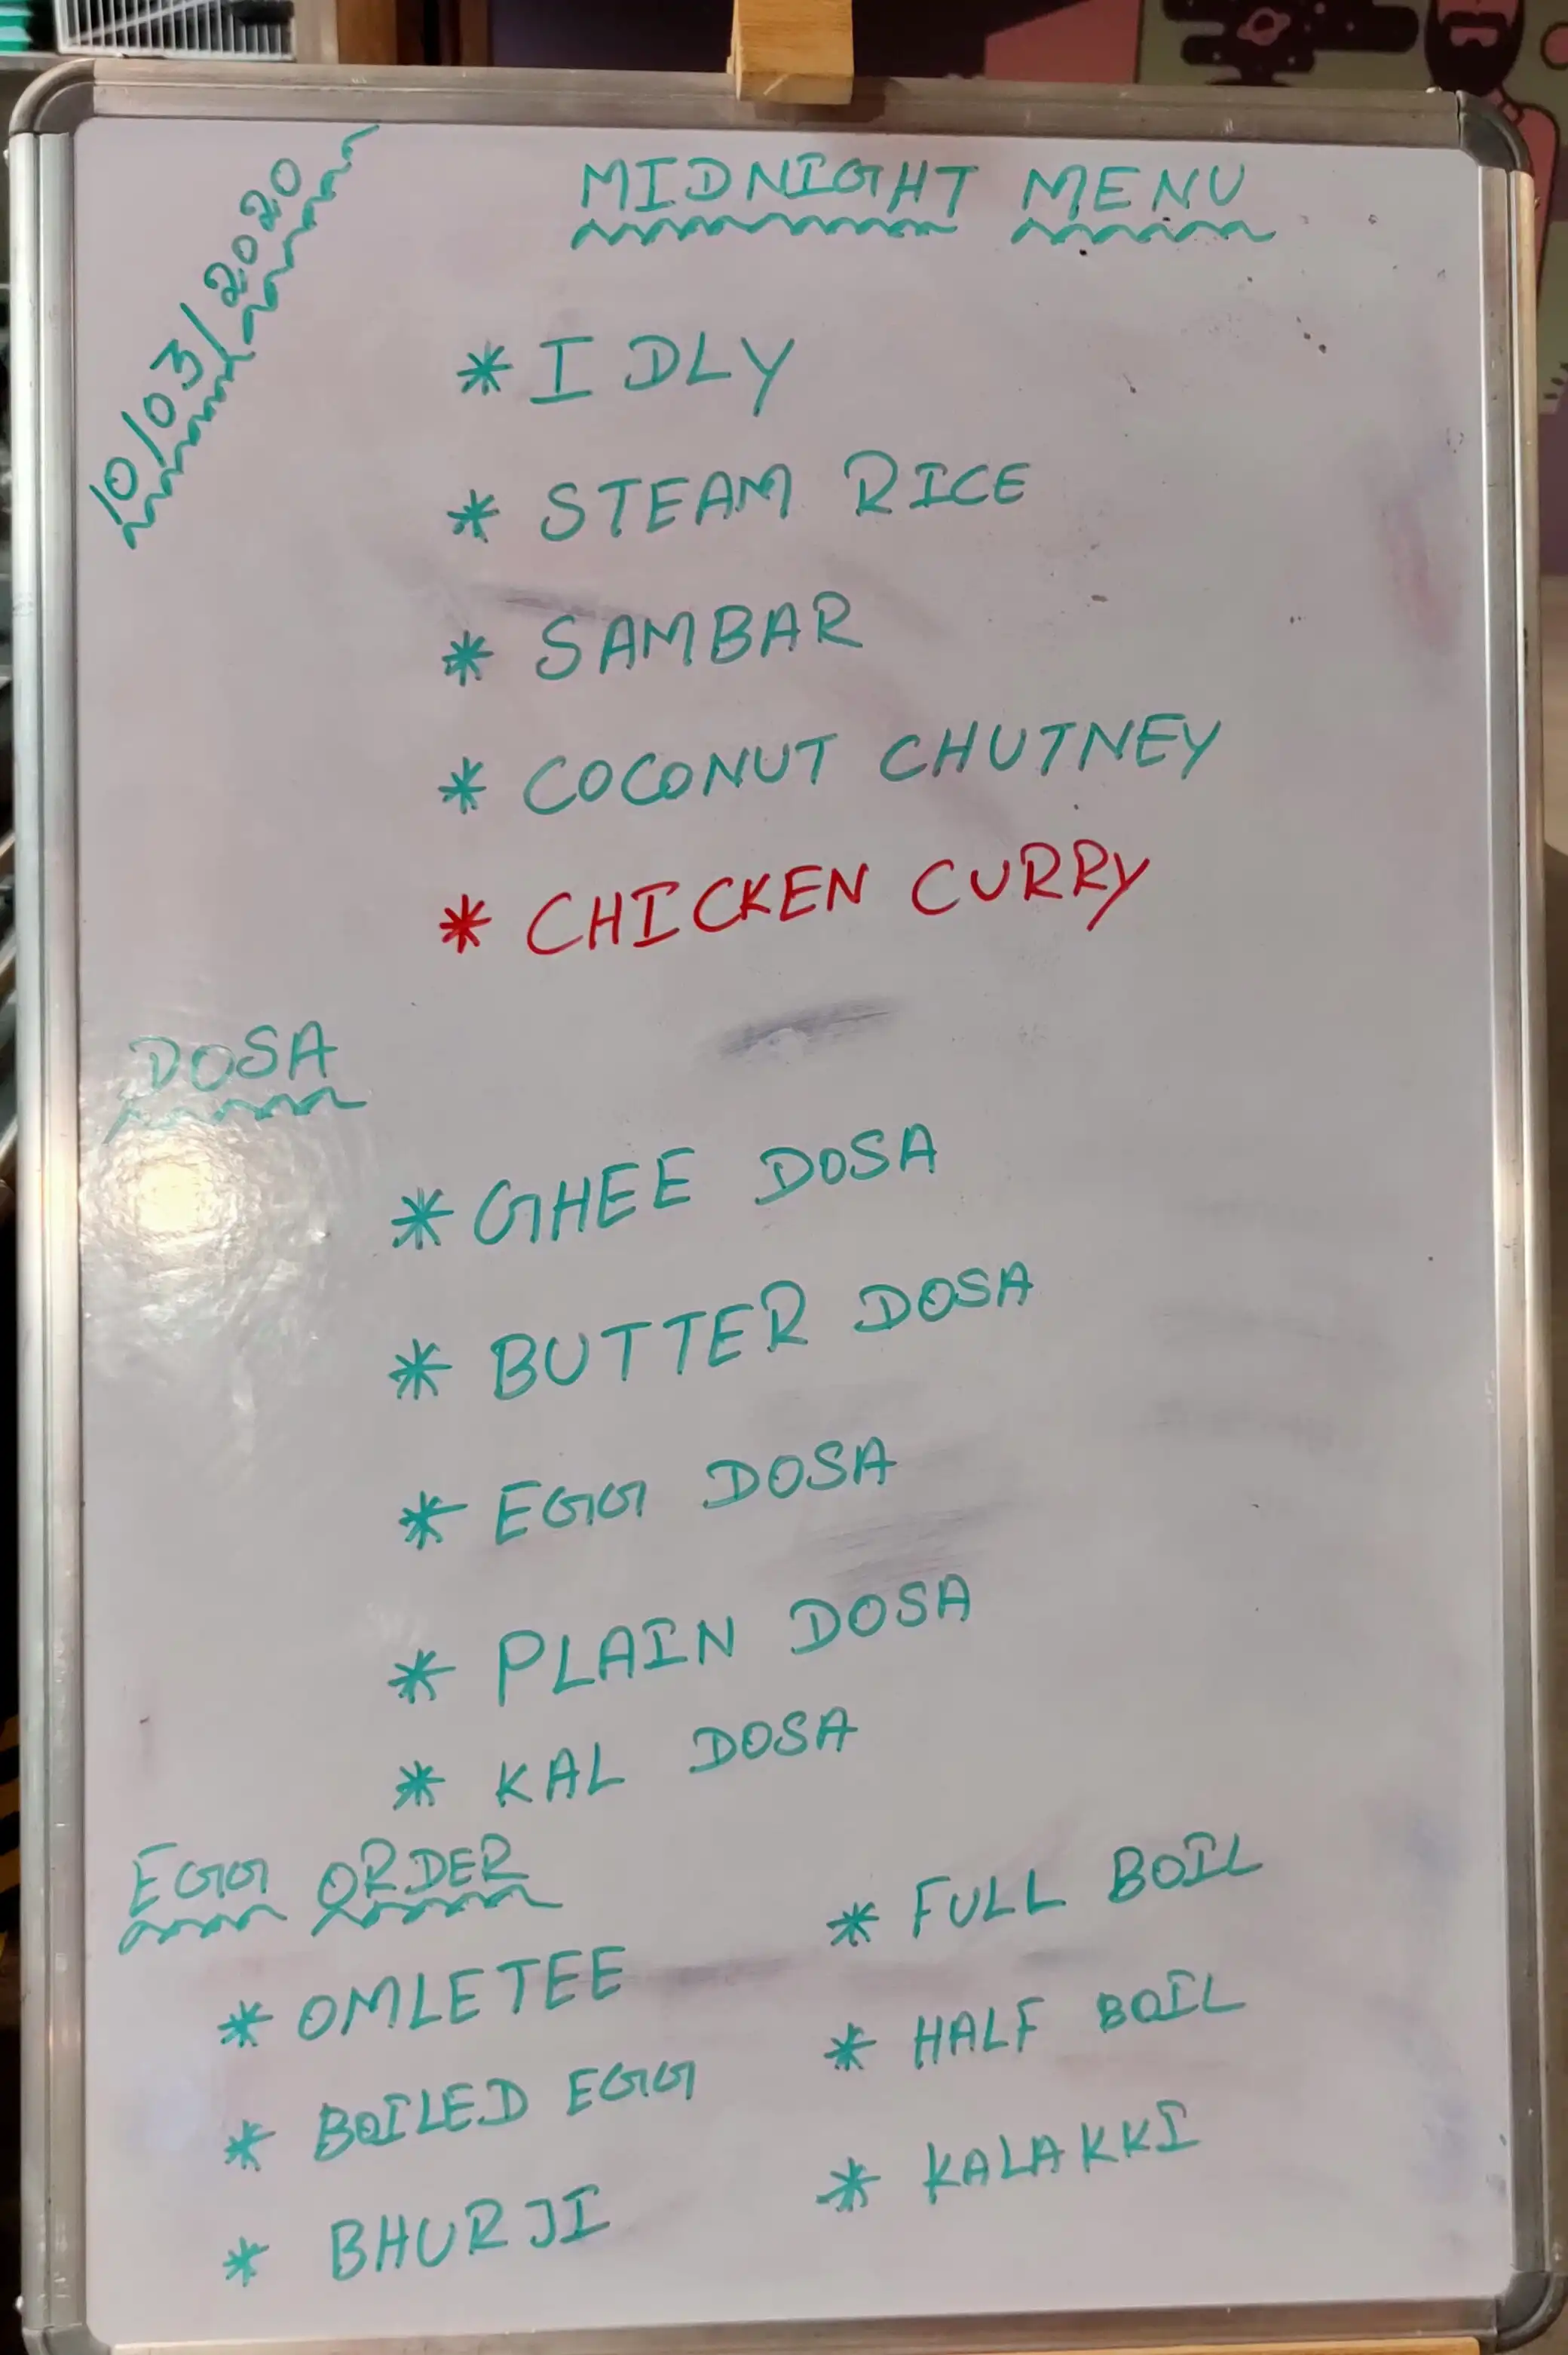 10/03/2020
MIDNIGHT MENU
* IDLY
* STEAM RICE
* SAMBAR
* COCONUT CHUTNEY
* CHICKEN CURRY
DOSA
* GHEE DOSA
* BUTTER DOSA
* EGG DOSA
* PLAIN DOSA
* KAL DOSA
EGG ORDER
* OMLETEE
* BOILED EGG
* BHURJI
* FULL BOIL
* HALF BOIL
* KALAKKI